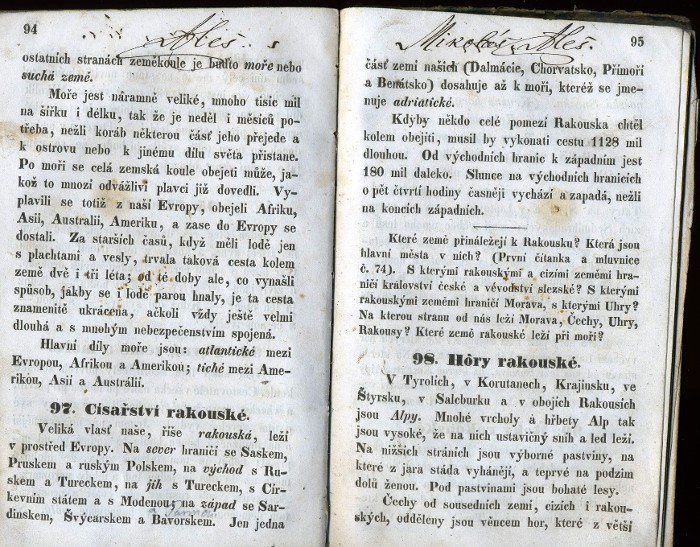 94
Aleš
ostatních stranách zeměkoule je buďto moře nebo
suchá země.
Moře jest náramně veliké, mnoho tisíc mil
na šířku i délku, tak že je neděl i měsíců po-
třeba, nežli koráb některou čásť jeho přejede a
k ostrovu nebo k jinému dílu světa přistane.
Po moři se celá zemská koule obejeti může, ja-
kož to mnozí odvážliví plavci již dovedli. Vy-
plavili se totiž z naší Evropy, obejeli Afriku,
Asii, Australii, Ameriku, a zase do Evropy se
dostali. Za starších časů, když měli lodě jen
s plachtami a vesly, trvala taková cesta kolem
země dvě i tři léta; od té doby ale, co vynašli
spůsob, jakby se i lodě parou hnaly, je ta cesta
znamenitě ukrácena, ačkoli vždy ještě velmi
dlouhá a s mnohým nebezpečenstvím spojená.
Hlavní díly moře jsou: atlantické mezi
Evropou, Afrikou a Amerikou; tiché mezi Ame-
rikou, Asií a Australií.
97. Císařství rakouské.
Veliká vlasť naše, říše rakouská, leží
v prostřed Evropy. Na sever hraničí se Saskem,
Pruskem a ruským Polskem, na východ s Ru-
skem a Tureckem, na jih s Tureckem, s Cír-
kevním státem a s Modenou; na západ se Sar-
dinskem, Švýcarskem a Bavorskem. Jen jedna
95
Mikoláš Aleš.
čásť zemí našich (Dalmácie, Chorvatsko, Přímoří
a Benátsko) dosahuje až k moři, kteréž se jme-
nuje adriatické.
Kdyby někdo celé pomezí Rakouska chtěl
kolem obejíti, musil by vykonati cestu 1128 mil
dlouhou. Od východních hranic k západním jest
180 mil daleko. Slunce na východních hranicích
o pět čtvrtí hodiny časněji vychází a zapadá, nežli
na koncích západních.
Které země přináležejí k Rakousku? Která jsou
hlavní města v nich? (První čítanka a mluvnice
č. 74). S kterými rakouskými a cizími zeměmi hra-
ničí království české a vévodství slezské? S kterými
rakouskými zeměmi hraničí Morava, s kterými Uhry?
Na kterou stranu od nás leží Morava, Čechy, Uhry,
Rakousy? Které země rakouské leží při moři?
98. Hory rakouské.
V Tyrolích, v Korutanech, Krajinsku, ve
Štyrsku, v Salcburku a v obojích Rakousích
jsou Alpy. Mnohé vrcholy a hřbety Alp tak
jsou vysoké, že na nich ustavičný sníh a led leží.
Na nižších stráních jsou výborné pastviny, na
které z jara stáda vyhánějí, a teprvé na podzim
dolů ženou. Pod pastvinami jsou bohaté lesy.
Čechy od sousedních zemí, cizích i rakou-
ských, odděleny jsou věncem hor, které z větší